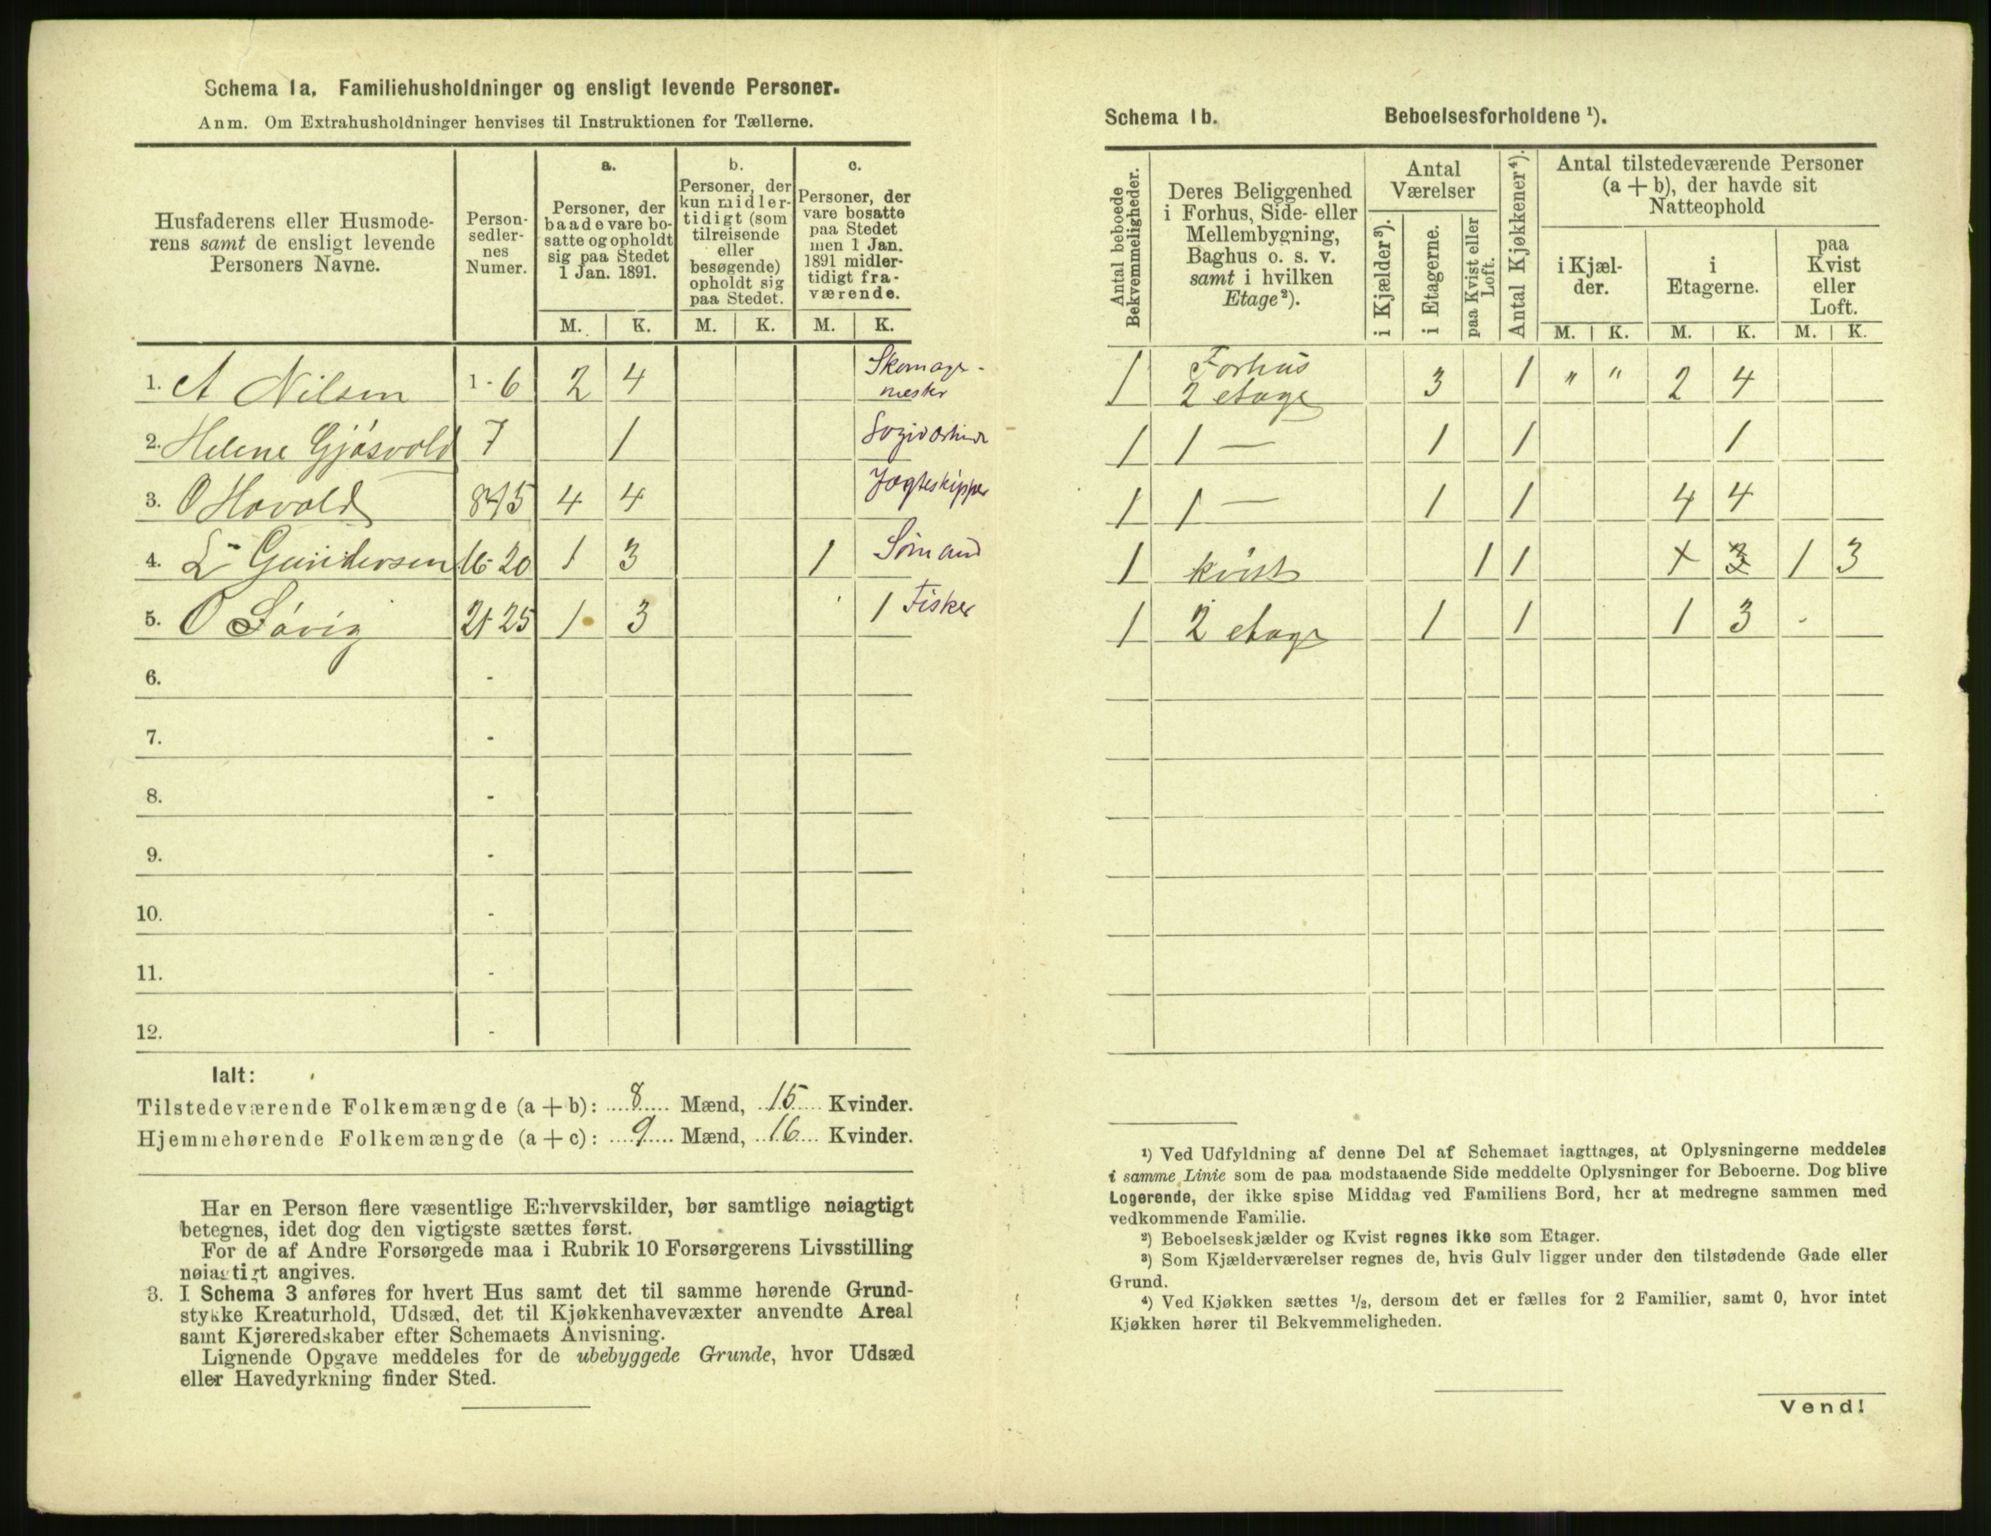 Schema 1a. Familiehusholdninger og ensligt levende Personer.
Anm. Om Extrahusholdninger henvises til Instruktionen for Tællerne.
Husfaderens eller Husmode-
rens samt de ensligt levende
Personers Navne.
Person-
sedler-
nes
Numer.
a.
Personer, der
baade vare bo-
satte og opholdt
sig paa Stedet
1 Jan. 1891.
b.
Personer, der
kun midler-
tidigt (som
tilreisende
eller
besøgende)
opholdt sig
paa Stedet.
c.
Personer, der
vare bosatte
paa Stedet
men 1 Jan.
1891 midler-
tidigt fra-
værende.
M. K. M. K. M. K.
1. A Nilsen 1-6 2 4 Skomager-
mester
2. Helene Gjøsvold 7 1
3. O Hovold 8-15 4 4 Jægteskipper
4. L Gundersen 16-20 1 3 1 Sømand
5. O Søvig 21-25 1 3 1 Fisker
6. -
7. -
8. -
9. -
10. -
11. -
12. -
Ialt:
Tilstedeværende Folkemængde (a+b): 8 Mænd, 15 Kvinder.
Hjemmehørende Folkemængde (a+c): 9 Mænd, 16 Kvinder.
Har en Person flere væsentlige Erhvervskilder, bør samtlige nøiagtigt
betegnes, idet dog den vigtigste sættes først.
For de af Andre Forsørgede maa i Rubrik 10 Forsørgerens Livsstilling
nøiagtigt angives.
3. I Schema 3 anføres for hvert Hus samt det til samme hørende Grund-
stykke Kreaturhold, Udsæd, det til Kjøkkenhavevæxter anvendte Areal
samt Kjøreredskaber efter Schemaets Anvisning.
Lignende Opgave meddeles for de ubebyggede Grunde, hvor Udsæd
eller Havedyrkning finder Sted.
Schema 1b. Beboelsesforholdene ¹).
Antal beboede
Bekvemmeligheder.
Deres Beliggenhed
i Forhus, Side- eller
Mellembygning,
Baghus o. s. v.
samt i hvilken
Etage²).
Antal
Værelser
i Kjælder³).
i Etagerne.
paa Kvist eller
Loft.
Antal Kjøkkener⁴).
Antal tilstedeværende Personer
(a + b), der havde sit
Natteophold
i Kjæl-
der.
i
Etagerne.
paa
Kvist
eller
Loft.
M. K. M. K. M. K.
1 Forhus
2 etage 3 1 " " 2 4
1 1 — 1 1 1
1 1 — 1 1 4 4
1 kvist 1 1 1 3 1 3
1 2 etage 1 1 1 3
¹) Ved Udfyldning af denne Del af Schemaet iagttages, at Oplysningerne meddeles
i samme Linie som de paa modstaaende Side meddelte Oplysninger for Beboerne. Dog blive
Logerende, der ikke spise Middag ved Familiens Bord, her at medregne sammen med
vedkommende Familie.
²) Beboelseskjælder og Kvist regnes ikke som Etager.
³) Som Kjælderværelser regnes de, hvis Gulv ligger under den tilstødende Gade eller
Grund.
⁴) Ved Kjøkken sættes ½, dersom det er fælles for 2 Familier, samt 0, hvor intet
Kjøkken hører til Bekvemmeligheden.
Vend!